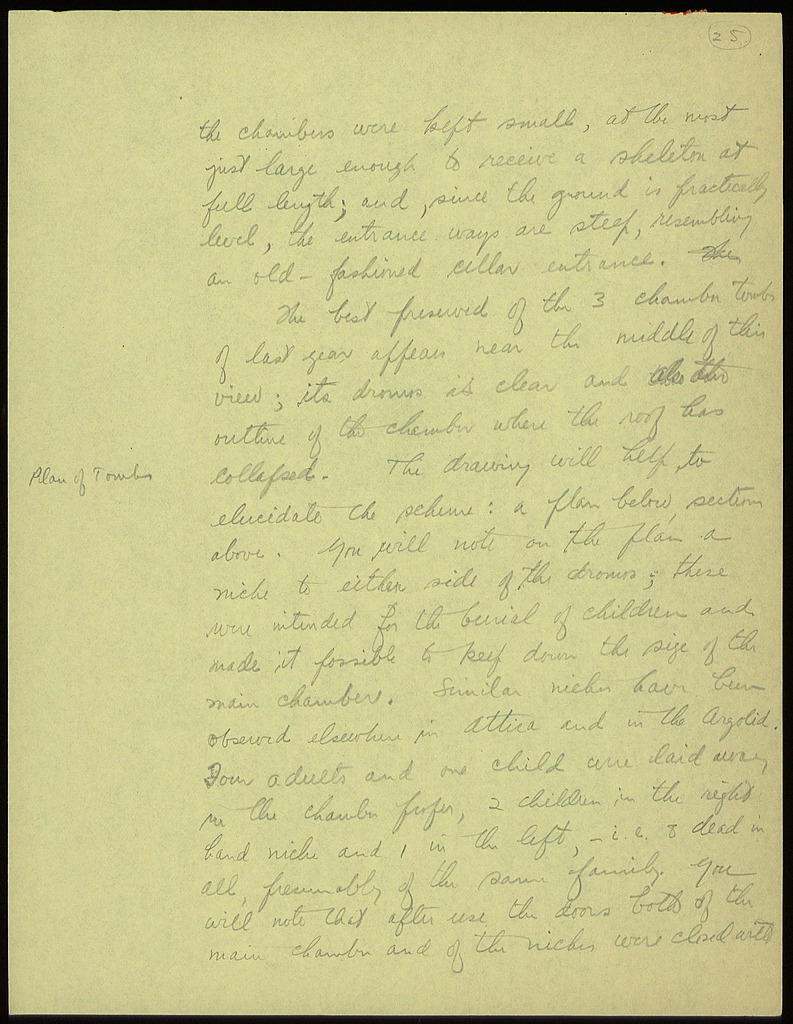 25.
the chambers were kept small, at the most
just large enough to receive a skeleton at
full length; and, since the ground is practically
level, the entrance ways are steep, resembling
an old-fashioned cellar entrance. The
The best preserved of the 3 chamber tombs
of last year appears near the middle of this
view; its dromos is clear and also the
outline of the chamber where the roof has
Plan of Tombs
collapsed. The drawing will help to
elucidate the scheme: a plan below, section
above. You will note on the plan a
niche to either side of the dromos; these
were intended for the burial of children and
made it possible to keep down the size of the
main chambers. Similar niches have been
observed elsewhere in Attica and in the Argolid.
Four adults and one child were laid away
in the chamber proper, 2 children in the right
hand niche and 1 in the left, - i.e. 8 dead in
all, presumably of the same family. You
will note that after use the doors both of the
main chamber and of the niches were closed with